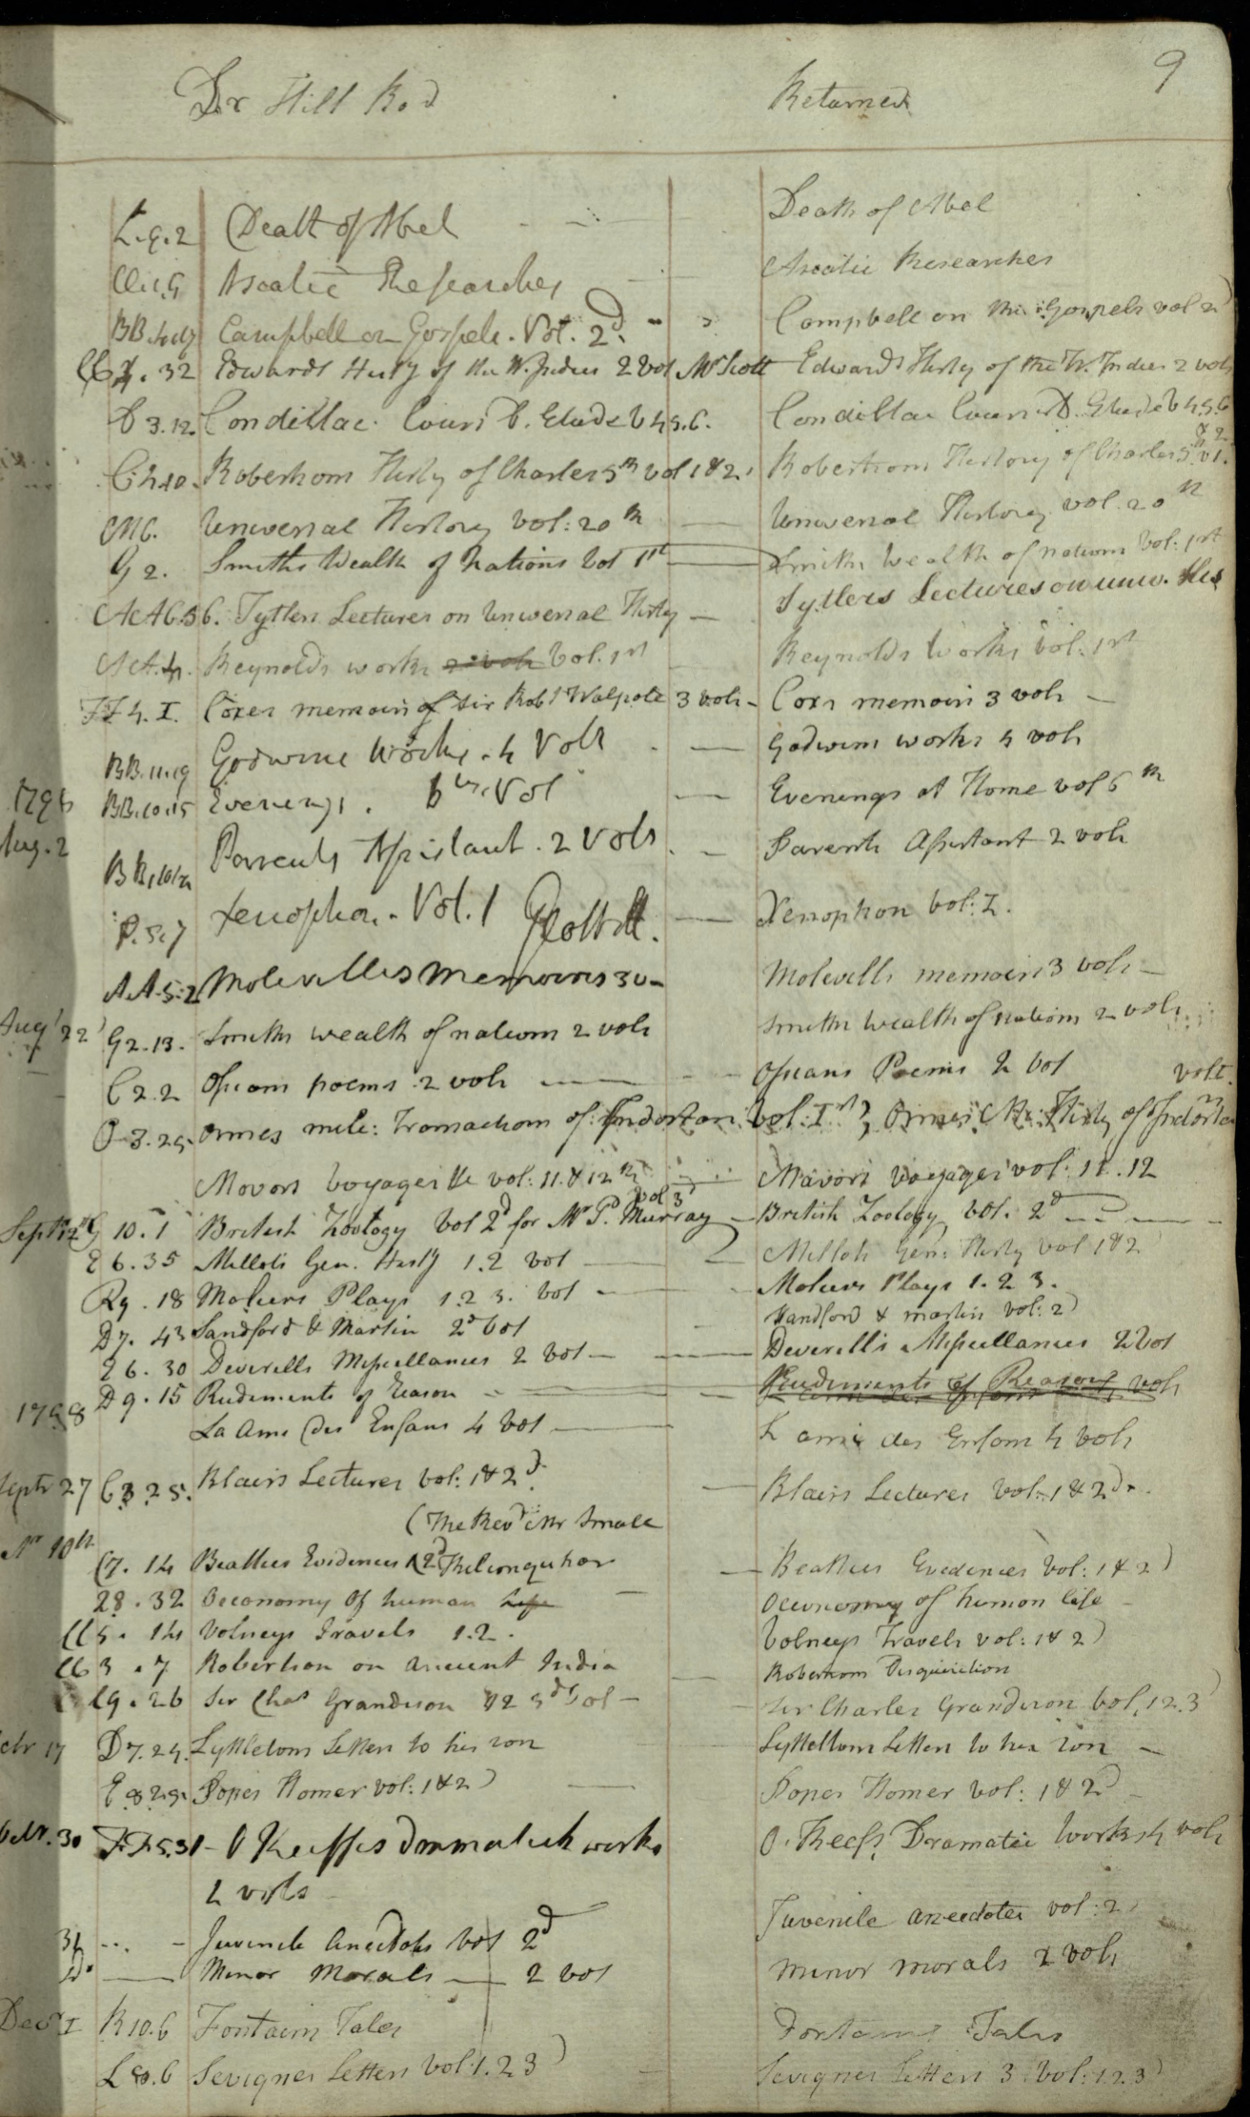 9
Dr Hill Rod Returned
L.9.2 Death of Abel Death of Abel
Asiatic Researches Asiatic Researches
Campbell on Gospels. Vol. 2d. Campbell on the Gospels vol 2d
32 Edwards Histy of the W. Indies 2 Vol Mr Scott Edwards Histy of the W. Indies 2 vols
C 3.12. Condillac Cours D. Etude v 4 5.6. Condillac Cours D. Etude v 4.5.6
C:4.10. Robertsons Histy of Charles 5th vol 1 & 2. Robertsons History of Charles 5th v 1. & 2
Universal History vol: 20th Universal History vol. 20th
G 2. Smiths Wealth of Nations Vol 1st Smiths Wealth of nations vol: 1st
Tytlers Lectures on Universal Histy Tytlers Lectures on univ. His
Reynolds works 2 vols Vol. 1st Reynolds works vol: 1st
FF 4. I. Coxes memoirs of Sir Robt Walpole 3 vols Coxs memoirs 3 vols
BB.11.19 Godwins Works. 4 Vols Godwins works 4 vols
1796 BB.10.15 Evenings. 6th. Vol Evenings at Home vol 6th
Aug. 2 Parents Assistant. 2 Vols Parents Assistant 2 vols
P.5.7 Xenophon. Vol. 1 Xenophon vol: I.
AA.5.2 Molevilles Memoires 3 v Molevills memoirs 3 vols
Augt 22 G2.13. Smiths wealth of nations 2 vols Smiths wealth of nations 2 vols
C 2.2 Ossians poems 2 vols Ossians Poems 2 Vol
O.3.25. Ormes mile: Transactions of Indostan Vol: Ist Ormes Histy of Indostan volt.
Movors voyages vol: 11. & 12th Mavors voyages vol: 11. 12
Septr G 10.1 British Zoology Vol 2d for Mr P. Murray vol 3d British Zoology vol. 2d
E 6.35 Millots Gen. Histy 1.2 vol Millots Gen: Histy vol 1 & 2
R9.18 Moliers Plays 1.2 3. vol Moliers Plays 1. 2 3.
D7. 43 Sandford & Martin 2d Vol Sandford & martin vol: 2d
E6. 30 Deverells Miscellanies 2 vol Deverells Miscellanies 2 vol
D9.15 Rudiments of Reason Rudiments of Reason vols
1798 La Ami des Enfans 4 Vol L ami des Enfans 4 vols
Septr 27 C3.25. Blairs Lectures vol: 1 & 2d. Blairs Lectures Vol: 1 & 2d.
(The Revd Mr Small
10th C7.14 Beatties Evidences 1 2d Beatties Evidences vol: 1 & 2d
28.32 Oeconomy Of human Life Oeconomy of human life
CC5.14 Volneys Travels 1.2. Volneys Travels vol: 1 & 2d
CC3.7 Robertson on ancient India Robertsons Disquisition
C9.26 Sir Chas Grandison 1 2 3d Vol Sir Charles Grandison vol, 1 2.3
17 D7.24. Lyttletons Letters to his son Lytteltons Letters to his son
E 8 29. Popes Homer vol: 1 & 2d Popes Homer vol: 1 & 2d
Octr. 30 FF5.31 O Keeffes Dramatick works O. Keefs Dramatic Works 4 vols
4 vols
31 Juvenile Anecdots Vol 2d Juvenile anecdotes vol: 2
Do. Minor Morals 2 Vol minor morals 2 vols
Decr I R10.6 Fontains Tales Fontains Tales
L 80.6 Sevignes Letters Vol: 1.2 3d Sevignes Letters 3 vol: 1.2.3d